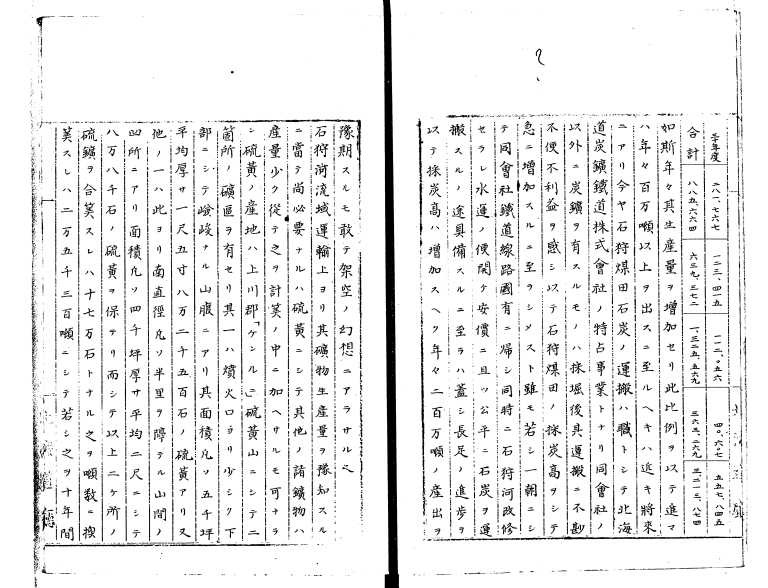 全年度 二八一、七六七 一二三、四一五 一一二、〇五六 四〇、六〇七 五五七、八四五
合計 八八五、六六四 六三九、三七二 一、三二五、五六九 三六三、二六九 三、二一三、八七四
如斯年々其生産量ヲ增加セリ此比例ヲ以テ進マ
ハ年々百万噸以上ヲ出スニ至ルヘキハ近キ將來
ニアリ今ヤ石狩煤田石炭ノ運搬ハ職トシテ北海
道炭鑛鐵道株式會社ノ特占事業トナリ同會社ノ
以外ニ炭鑛ヲ有スルモノハ採掘後其運搬ニ不尠
不便不利益ヲ感シ以テ石狩煤田ノ採炭高ヲシテ
急ニ增加スルニ至ラシメスト雖モ若シ一朝ニシ
テ同會社鐵道線路國有ニ帰シ同時ニ石狩河改修
セラレ水運ノ便開ケ安價ニ且ツ公平ニ石炭ヲ運
搬スルノ途具備スルニ至ラハ蓋シ長足ノ進歩ヲ
以テ採炭高ハ增加スヘク年々二百万噸ノ産出ヲ
豫期スルモ敢テ架空ノ幻想ニアラサルヘシ
石狩河流域運輸上ヨリ其礦物生産量ヲ豫知スル
ニ當テ尚必要ナルハ硫黄ニシテ其他ノ諸鑛物ハ
産量少ク從テ之ヲ計筭ノ中ニ加ヘサルモ可ナラ
ン硫黄ノ産地ハ上川郡「ケンルニ」硫黄山ニシテ二
箇所ノ礦區ヲ有セリ其一ハ燌火口ヨリ少シク下
部ニシテ嶮峻ナル山腹ニアリ其面積凡ソ五千坪
平均厚サ一尺五寸八万二千五百石ノ硫黄アリ又
他ノ一ハ此ヨリ南直徑凡ソ半里ヲ隔テル山間ノ
凹所ニアリ面積凡ソ四千坪厚サ平均二尺ニシテ
八万八千石ノ硫黄ヲ保テリ而シテ以上二ケ所ノ
硫鑛ヲ合筭スレハ十七万石トナル之ヲ噸数ニ換
筭スレハ二万五千三百噸ニシテ若シ之ヲ十年間